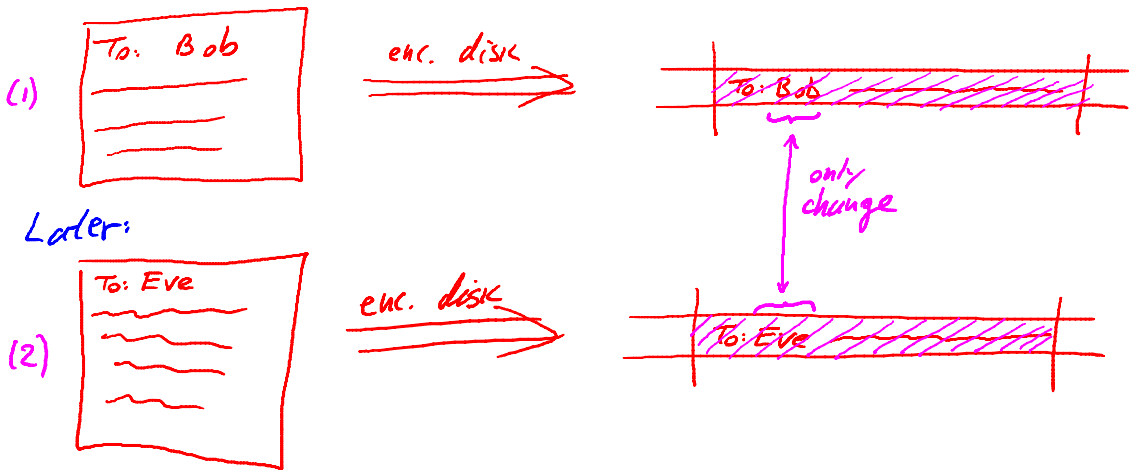 (1)
To: Bob
enc. disk
To: Bob
only
change
Later:
(2)
To: Eve
enc. disk
To: Eve